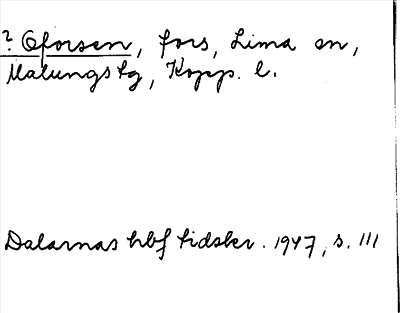 ? Oforsen, fors, Lima sn,
Malungs tg, Kopp. l.
Dalarnas hbf tidskr. 1947, s. 111